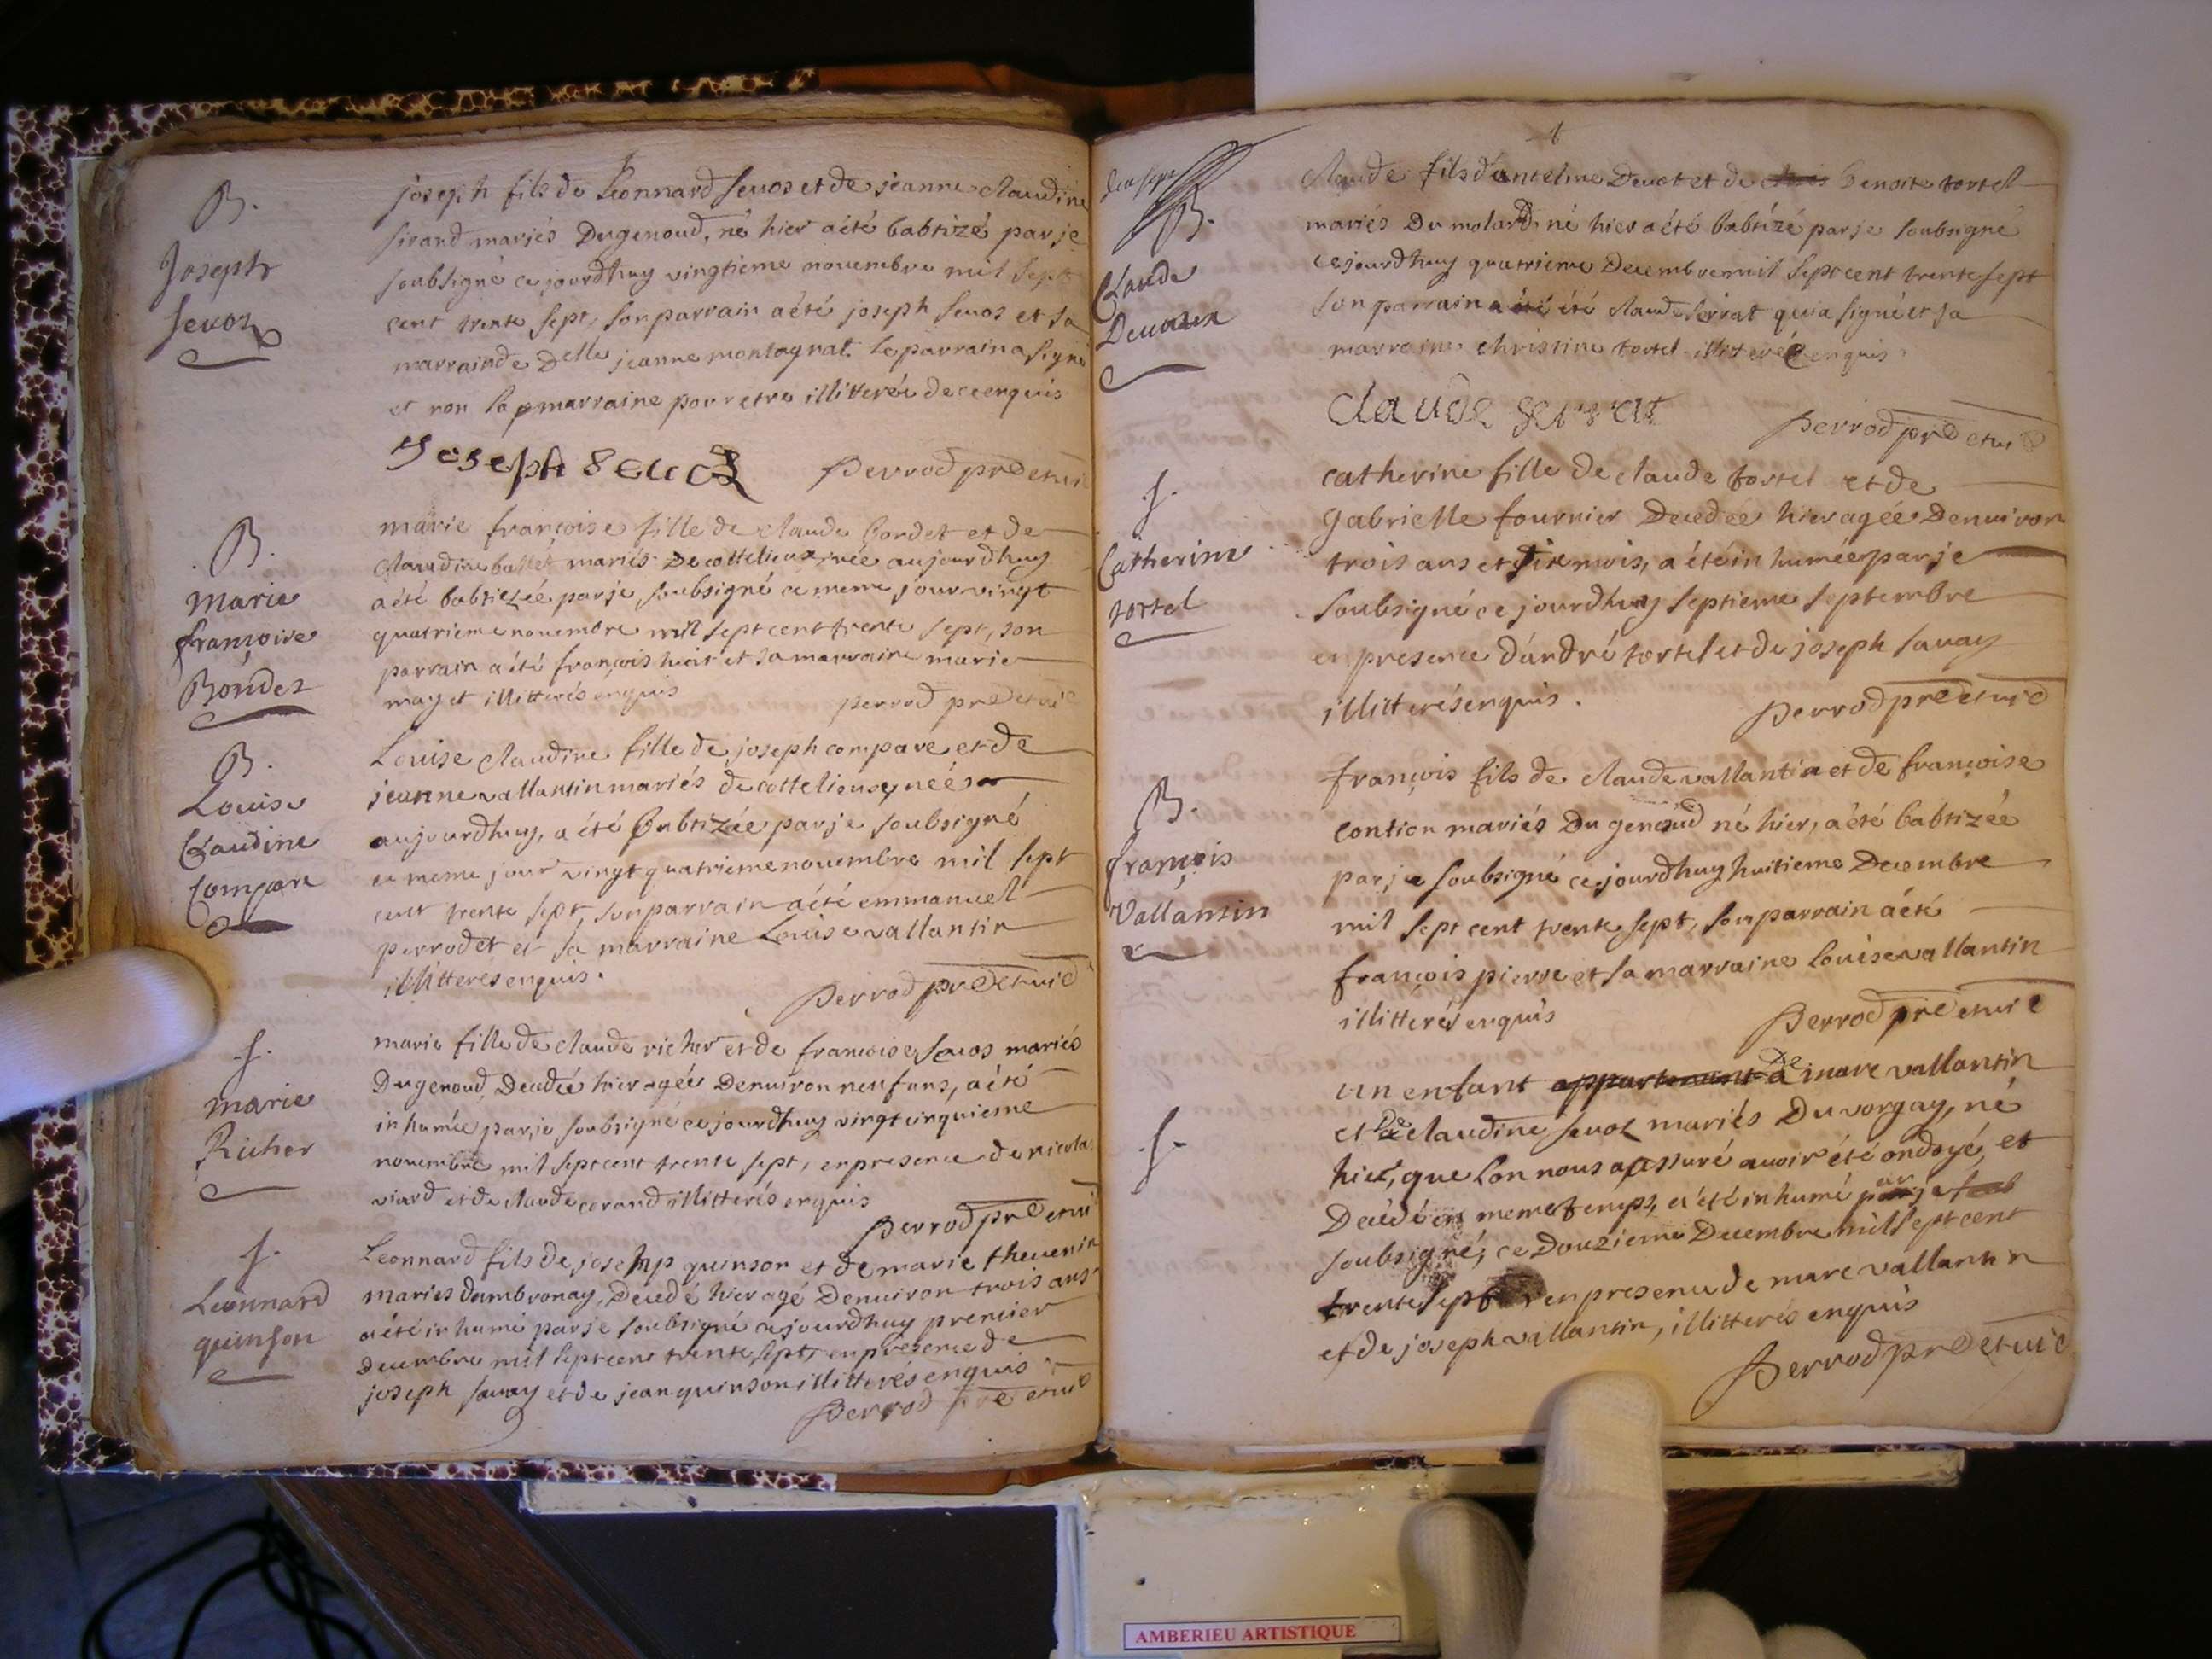 B.
Joseph
Sevoz
joseph fils de Leonnard sevos et de jeanne claudine
sirand mariés Dugenoud, né hier a été babtizé par je
soubsigné ce jourdhuy vingtieme novembre mil sept
cent trente sept, son parrain a été joseph sevos et sa
marrainde Delle jeanne montagnat le parrain a signé
et non la marraine pour etre illitterée de ce enquis
Joseph Sevos
perrod pre et vic
B.
Marie
françoise
Bordet
marie françoise fille de claude bordet et de
claudine ballet mariés De cottelieux, née aujourdhuy
a été babtizée par je soubsigné ce meme jour vingt
quatrieme novembre mil sept cent trente sept, son
parrain a été françois huit et sa marraine marie
mayet illitterés enquis
perrod pre et vic
B.
Louise
Claudine
Compare
Louise claudine fille de joseph comparé et de
jeanne vallantin mariés de cottelieux, née
aujourdhuy, a été babtizée par je soubsigné
ce meme jour vingt quatrieme novembre mil sept
cent trente sept, son parrain a été emmanuel
perrodet et sa marraine Louise vallantin
illitterés enquis.
perrod pre et vic
S.
Marie
Richer
marie fille de claude richer et de francoise sevos mariés
Dugenoud, Decedée hier agée Denviron neuf ans, a été
inhumée par je soubsigné ce jourdhuy vingt cinquieme
novembre mil sept cent trente sept, en presence de nicola
viard et de claude corand illitterés enquis
perrod pre et vic
S.
Leonnard
quinson
Leonnard fils de josehp quinson et de marie thevenin
mariés dambronay, Decedé hier agé Denviron trois ans
a été inhumé par je soubsigné ce jourdhuy premier
decembre mil sept cent trente sept, en presence de
joseph savay et de jean quinson illitterés enquis
perrod pre et vic
B.
Claude
claude fils d'anteline Devot et de benoite tortel
mariés Du molard, né hier a été babtizé par je soubsigné
ce jourdhuy quatrieme Decembre mil sept cent trente sept
son parrain a été claude serrat qui a signé et sa
marraine christine tortel illiterée enquis
claude serrat
perrod pre et vic
S.
Catherine
tortel
catherine fille de claude tortel et de
gabrielle fournier Decedée hier agée Denviron
trois ans et six mois, a été inhumée par je
soubsigné ce jourdhuy septieme septembre
en presence d'andré tortel et de joseph savay
illitterés enquis.
perrod pre et vic
B.
françois
Vallantin
françois fils de claude vallantin et de françoise
contion mariés Du genoud né hier, a été babtizée
par je soubsigné ce jourdhuy huitieme Decembre
mil sept cent trente sept, son parrain a été
françois pierre et sa marraine Louise vallantin
illitterés enquis
perrod pre et vic
S.
un enfant appartenant a De marc vallantin
et De claudine sevoz mariés Du vorgay, né
hier, que lon nous a assuré avoir été ondoyé, et
Decedé en meme temps, a été inhumé par je
soubsigné, ce Douzieme Decembre mil sept cent
trente sept en presence de marc vallantin
et de joseph vallantin, illitterés enquis
perrod pre et vic
AMBERIEU ARTISTIQUE